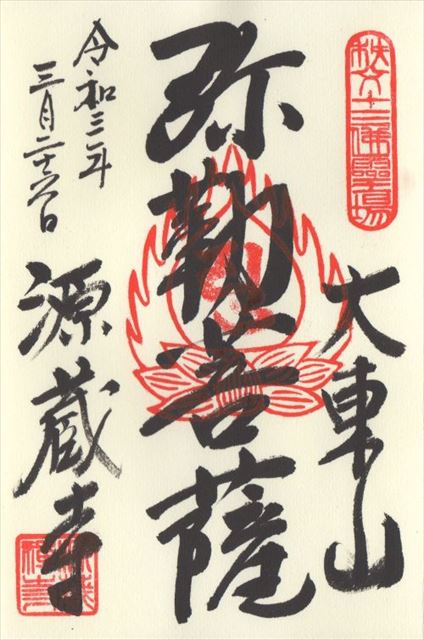 秩父十三佛靈場
大東山
弥勒菩薩
令和三年
三月二十六日
源蔵寺